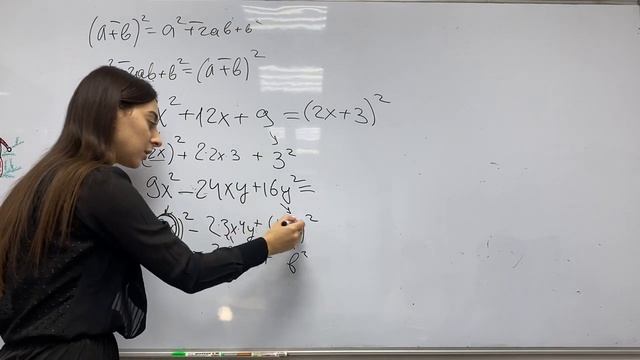 (a∓b)² = a² ∓ 2ab + b²
∓2ab + b² = (a∓b)²
x² + 12x + 9 = (2x+3)²
(2x)² + 2·2x·3 + 3²
9x² − 24xy + 16y² =
)² − 2·3x·4y + ( )²
b²